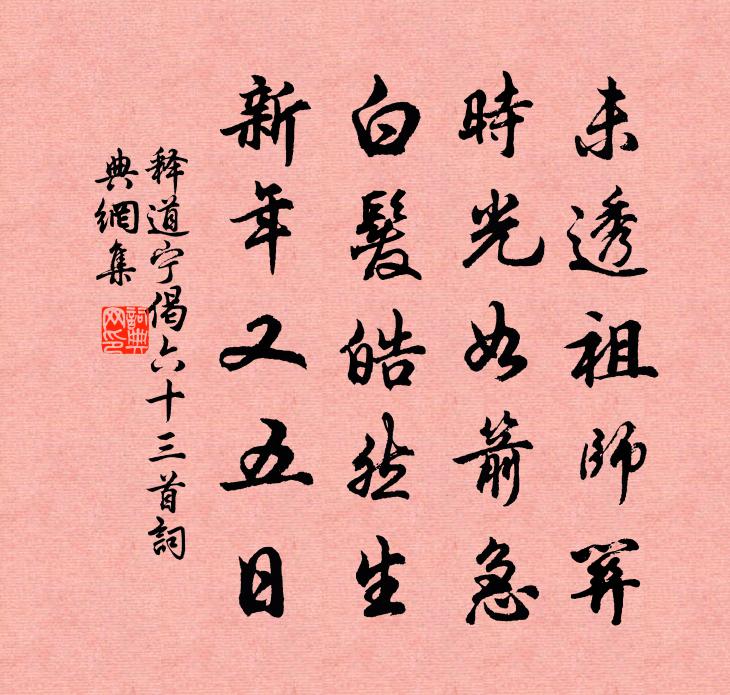 未透祖師關
時光如箭急
白髮皓然生
新年又五日
释道宁偈六十三首詞
典網集
詞典
网印